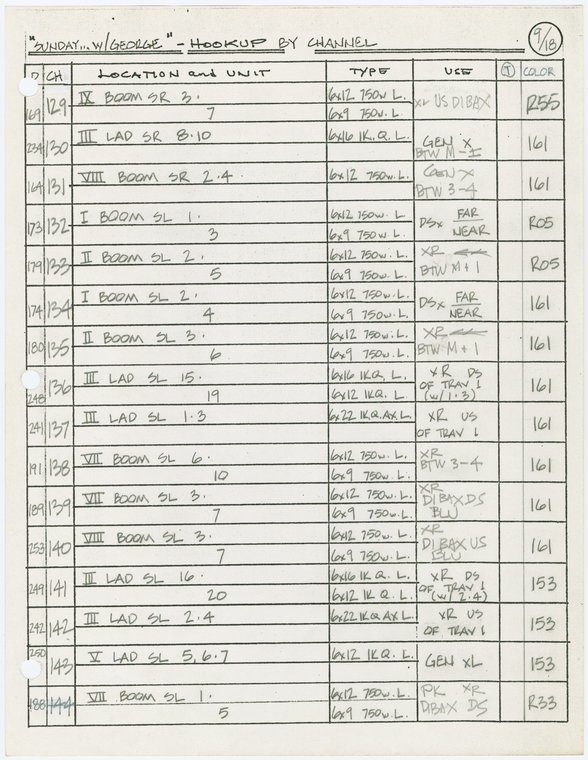 "SUNDAY... W/GEORGE" - HOOKUP BY CHANNEL 9/18
D CH LOCATION and UNIT TYPE USE T COLOR
169 129 IX BOOM SR 3. 6x12 750w L. XR US DIBAX R55
7 6x9 750w L.
234 130 III LAD SR 8.10 6x16 1K.Q.L. GEN X 161
BTW M-I
164 131 VIII BOOM SR 2.4 6x12 750w.L. GEN X 161
BTW 3-4
173 132 I BOOM SL 1. 6x12 750w. L DSx FAR R05
3 6x9 750w.L. NEAR
179 133 II BOOM SL 2. 6x12 750w.L. XR R05
5 6x9 750w.L. BTW M+1
174 134 I BOOM SL 2. 6x12 750w.L. DSx FAR 161
4 6x9 750w.L. NEAR
180 135 II BOOM SL 3. 6x12 750w.L. XR 161
6 6x9 750w.L. BTW M+1
248 136 III LAD SL 15. 6x16 1KQ. L. XR DS 161
19 6x12 1KQ. L. OF TRAV 1
(w/1.3)
241 137 III LAD SL 1.3 6x22 1KQ.AX.L. XR US 161
OF TRAV 1
191 138 VII BOOM SL 6. 6x12 750w.L. XR 161
10 6x9 750w.L. BTW 3-4
189 139 VII BOOM SL 3. 6x12 750w.L. XR 161
7 6x9 750w.L. DIBAX DS
BLU
253 140 VIII BOOM SL 3. 6x12 750w.L. XR 161
7 6x9 750w.L. DIBAX US
BLU
249 141 III LAD SL 16. 6x16 1K Q. L. XR DS 153
20 6x12 1K Q. L. OF TRAV 1
(w/2.4)
242 142 III LAD SL 2.4 6x22 1KQ AX L. XR US 153
OF TRAV 1
250 143 V LAD SL 5,6.7 6x12 1KQ. L. GEN XL 153
188 144 VII BOOM SL 1. 6x12 750w.L. PK XR R33
5 6x9 750w.L. DIBAX DS